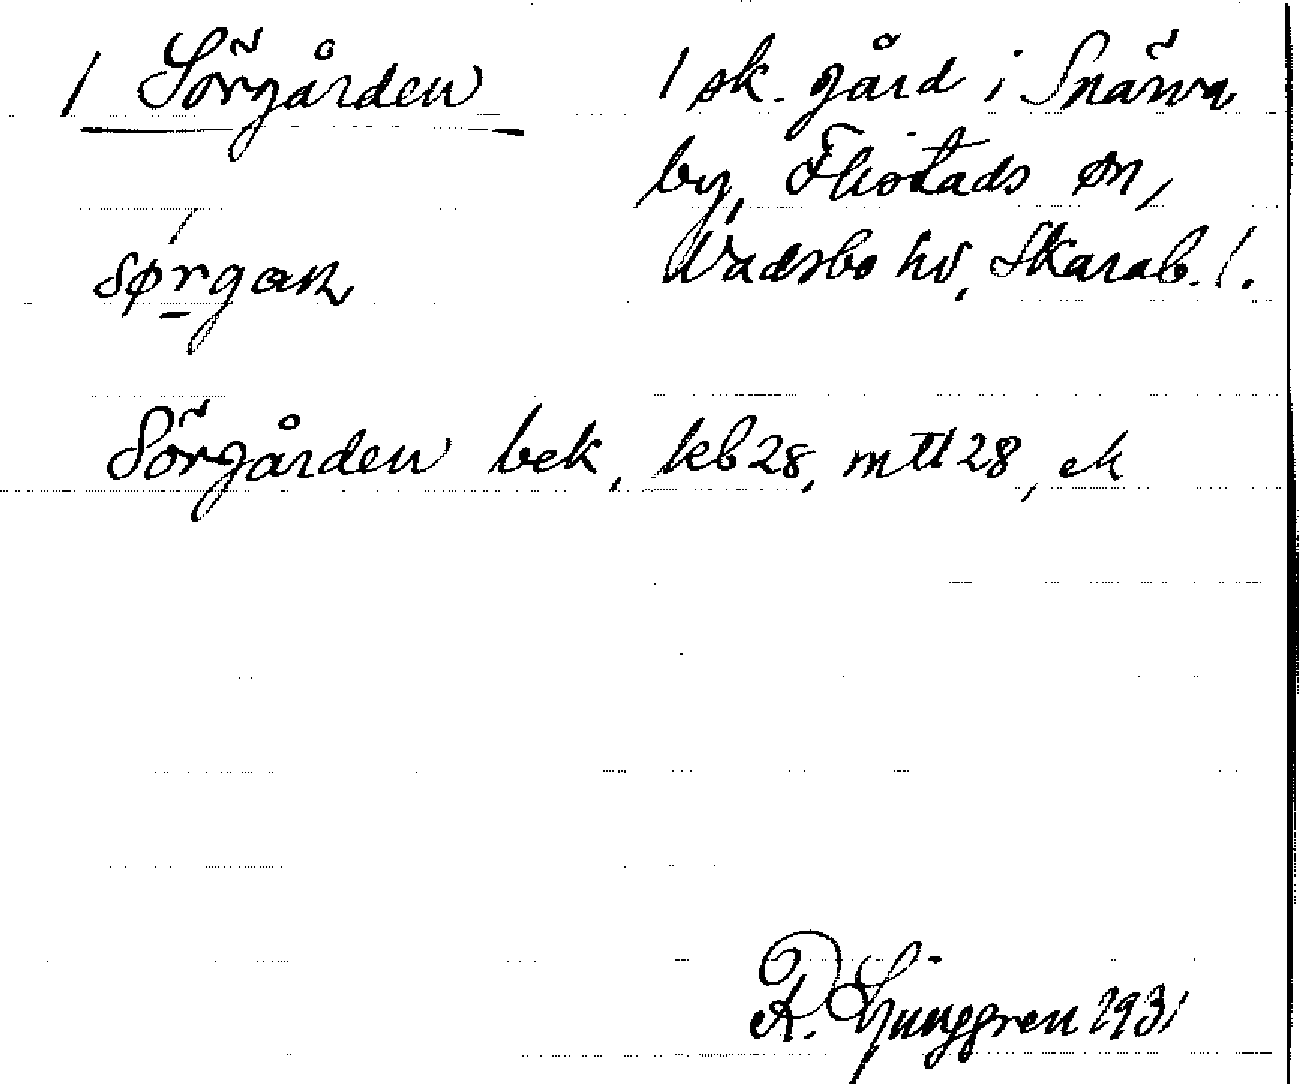 / Sörgården
/ sk. gård i Snärva
by, Flistads sn,
Vadsbo hd, Skarab. l.
Sörgården bek, kb 28, mtl 28, ek
R. Ljunggren 1931